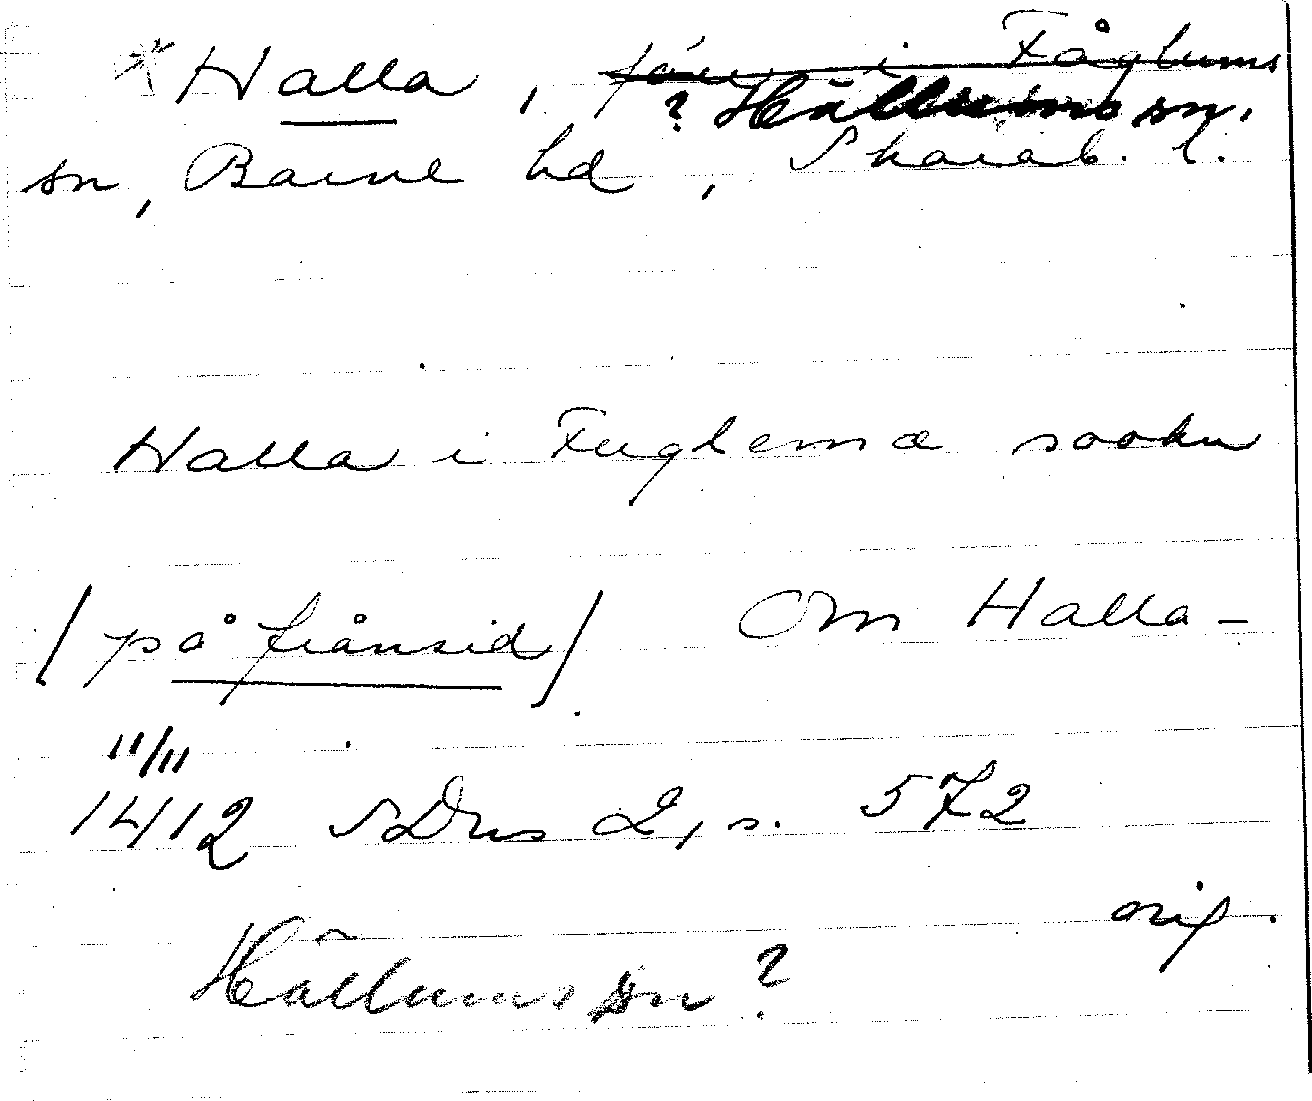 * Halla, förr i Fåglums
? Hällums sn.
sn, Barne hd, Skarab. l.
Halla i Fughlema sookn
/på frånsid/ Om Halla-
11/11
1412 SDns 2, s. 572
orig.
Hällums sn?